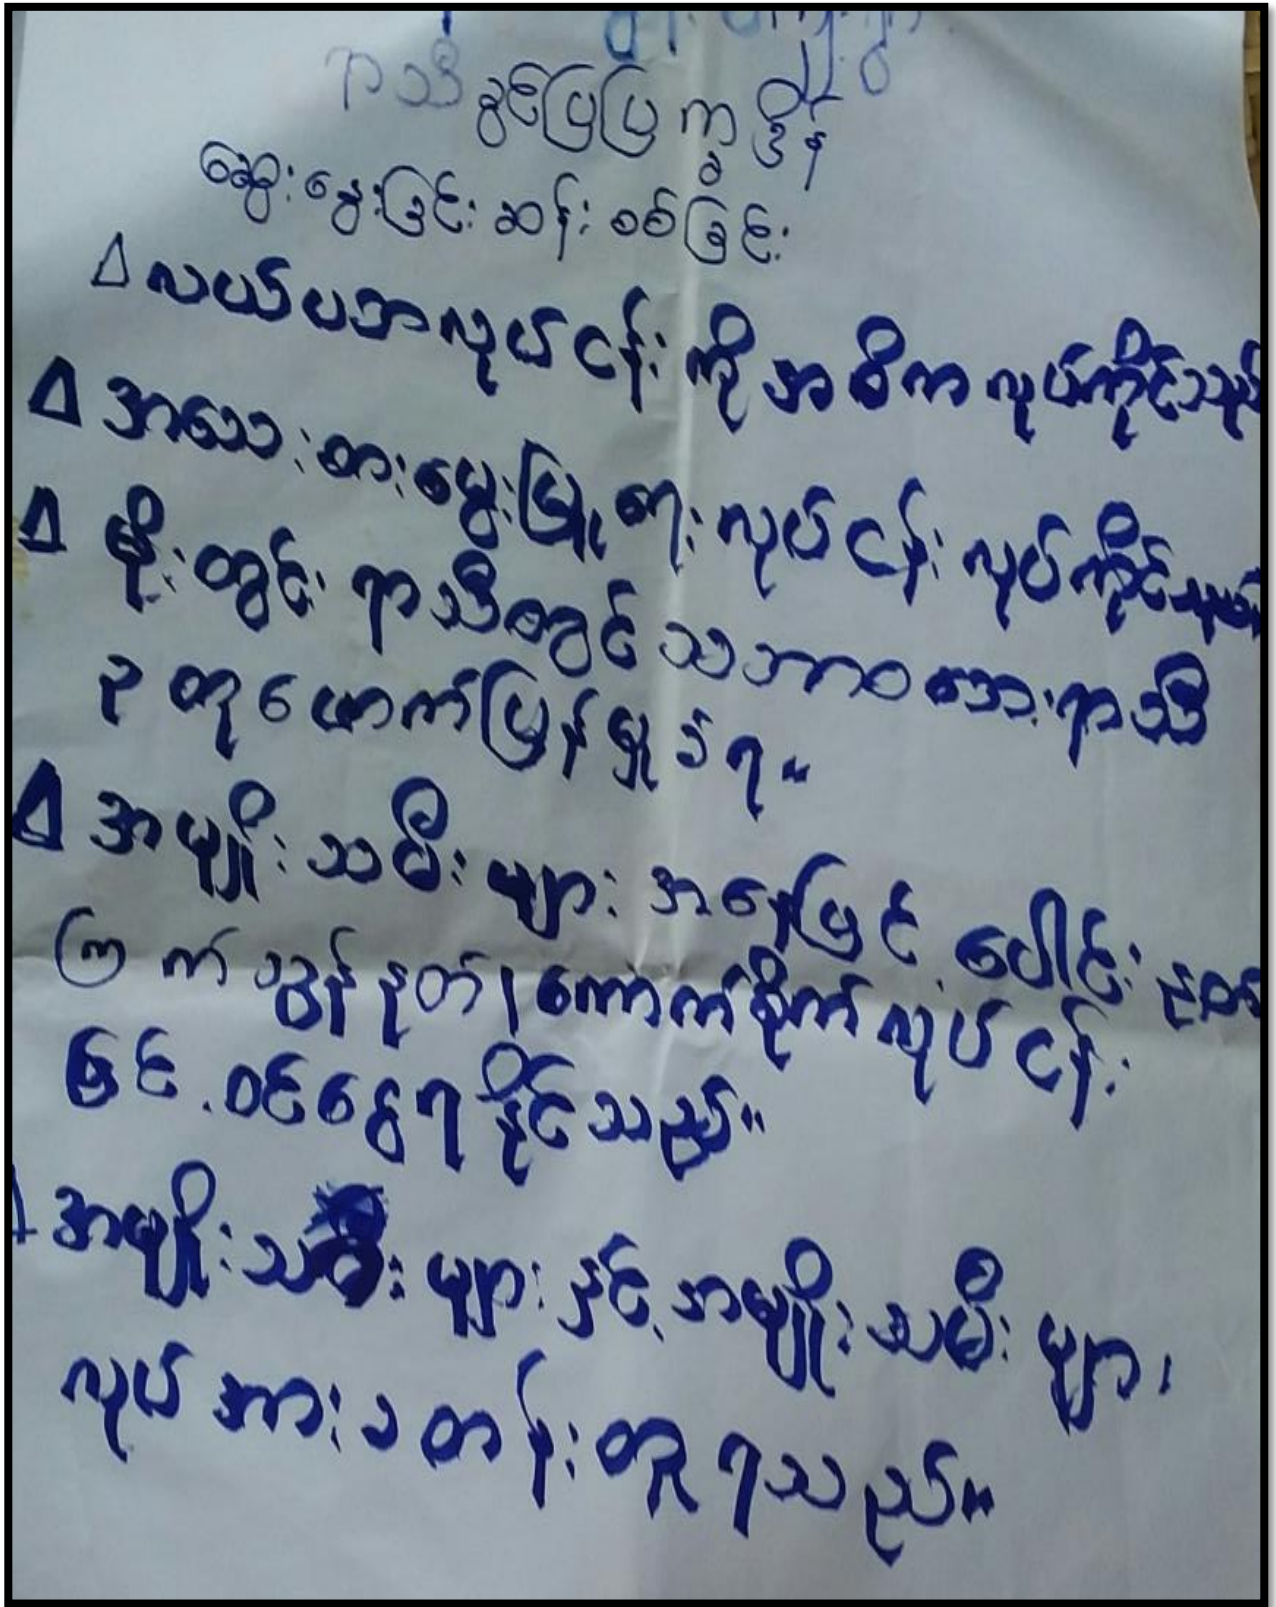 ရာသီခွင်ပြပြက္ခဒိန်
ဆွေးနွေးခြင်း ဆန်းစစ်ခြင်း
Δ လယ်ယာလုပ်ငန်းကို အဓိက လုပ်ကိုင်သည်
Δ အသေးစားမွေးမြူရေးလုပ်ငန်း လုပ်ကိုင်
Δ မိုးတွင်းရာသီတွင် သဘာဝဘေးရာသီ
ဥတုဖောက်ပြန်မှုခံရ။
Δ အမျိုးသမီးများ အနေဖြင့် ပေါင်း
ကြက်သွန်နုတ်၊ ကောက်စိုက်လုပ်ငန်း
ဖြင့် ဝင်ငွေရနိုင်သည်။
အမျိုးသားများနှင့် အမျိုးသမီးများ
လုပ်အားခတန်းတူရသည်။